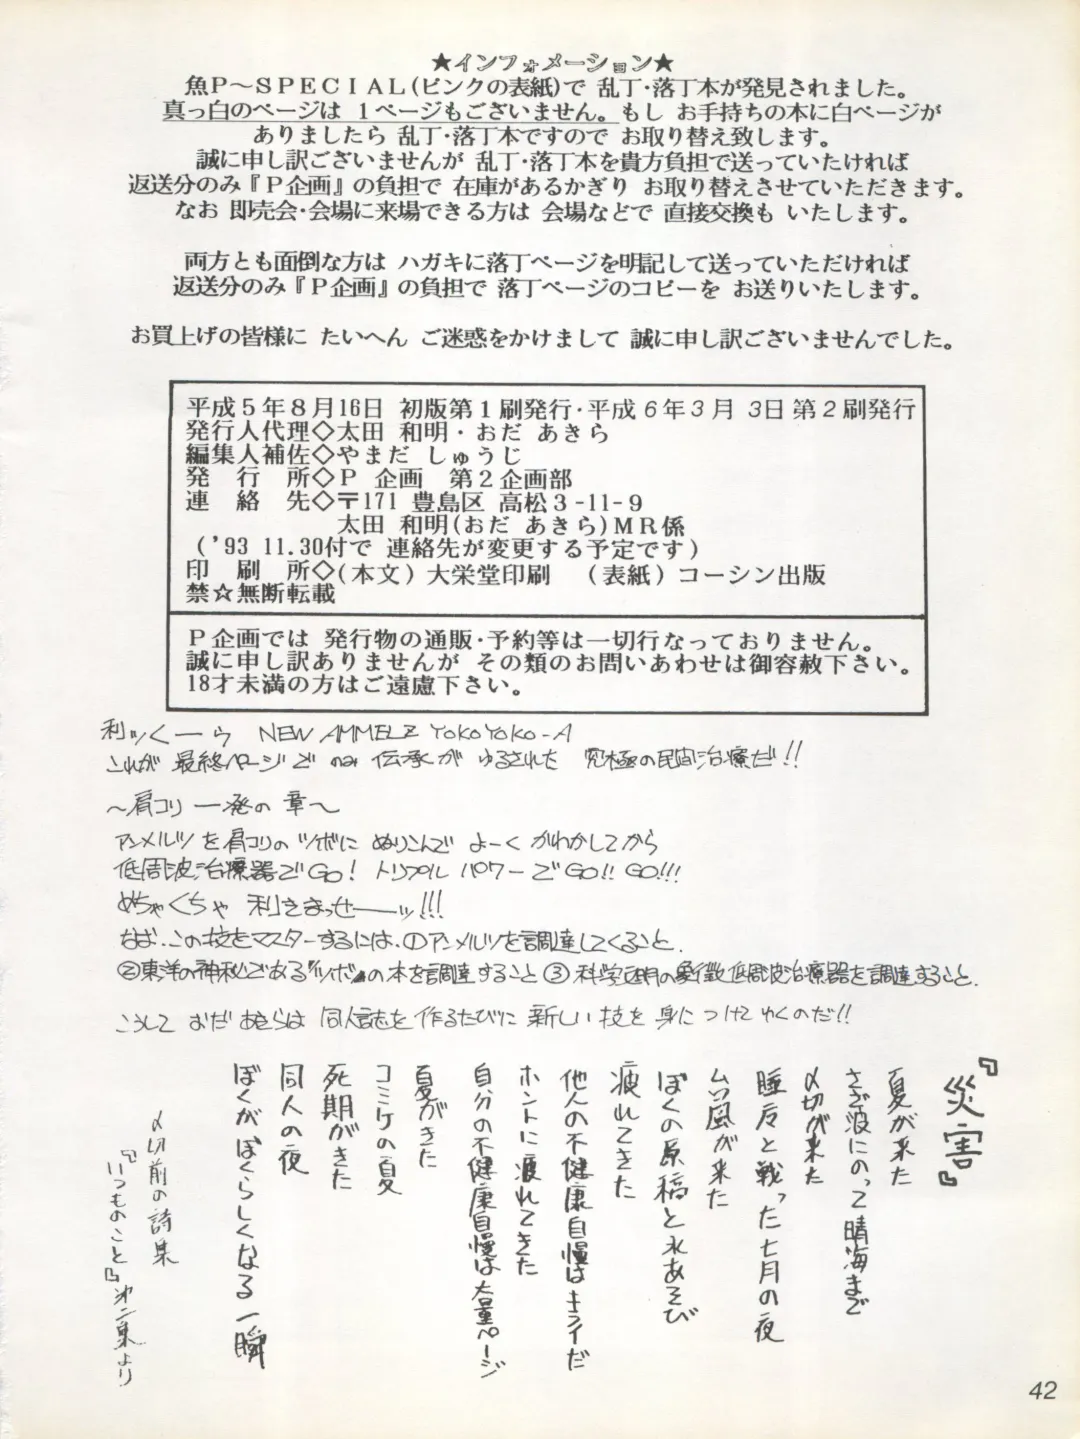 ★インフォメーション★
魚P～SPECIAL(ピンクの表紙)で 乱丁・落丁本が発見されました。
真っ白のページは 1ページもございません。もし お手持ちの本に白ページが
ありましたら 乱丁・落丁本ですので お取り替え致します。
誠に申し訳ございませんが 乱丁・落丁本を貴方負担で送っていたければ
返送分のみ『P企画』の負担で 在庫があるかぎり お取り替えさせていただきます。
なお 即売会・会場に来場できる方は 会場などで 直接交換も いたします。
両方とも面倒な方は ハガキに落丁ページを明記して送っていただければ
返送分のみ『P企画』の負担で 落丁ページのコピーを お送りいたします。
お買上げの皆様に たいへん ご迷惑をかけまして 誠に申し訳ございませんでした。
平成5年8月16日 初版第1刷発行・平成6年3月 3日第2刷発行
発行人代理◇太田 和明・おだ あきら
編集人補佐◇やまだ しゅうじ
発 行 所◇P 企画 第2企画部
連 絡 先◇〒171 豊島区 高松3-11-9
太田 和明(おだ あきら)MR係
('93 11.30付で 連絡先が変更する予定です)
印 刷 所◇(本文)大栄堂印刷 (表紙)コーシン出版
禁☆無断転載
P企画では 発行物の通販・予約等は一切行なっておりません。
誠に申し訳ありませんが その類のお問いあわせは御容赦下さい。
18才未満の方はご遠慮下さい。
利ッくーっ NEW AMMELZ YOKOYOKO-A
これが 最終ページで のみ 伝承が ゆるされた 究極の民間治療だ!!
～肩コリ 一発の 章～
アンメルツ を 肩コリの ツボに ぬりこんで よーく かわかしてから
低周波治療器でGo! トリプル パワーでGo!! GO!!!
めちゃくちゃ 利きまっせーーッ!!!
なお、この技をマスターするには、①アンメルツを調達してくること、
②東洋の神秘である"ツボ"の本を調達すること ③科学文明の象徴低周波治療器を調達すること、
こうして おだ あきらは 同人誌を 作るたびに 新しい 技を 身に つけて ゆくのだ!!
『災害』
夏が来た
さざ波にのって晴海まで
〆切が来た
睡魔と戦った七月の夜
台風が来た
ぼくの原稿と水あそび
疲れてきた
他人の不健康自慢はキライだ
ホントに疲れてきた
自分の不健康自慢は大量ページ
夏がきた
コミケの夏
死期がきた
同人の夜
ぼくがぼくらしくなる一瞬
〆切前の詩集
『いつものこと』第二集より
42